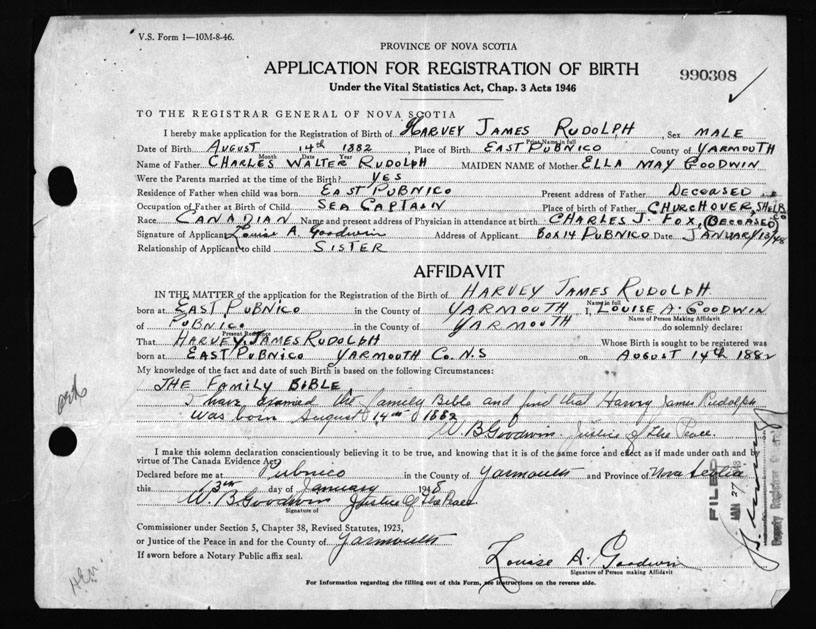 V.S. Form 1—10M-8-46.
PROVINCE OF NOVA SCOTIA
APPLICATION FOR REGISTRATION OF BIRTH
990308
Under the Vital Statistics Act, Chap. 3 Acts 1946
TO THE REGISTRAR GENERAL OF NOVA SCOTIA
I hereby make application for the Registration of Birth of HARVEY JAMES RUDOLPH, Sex MALE
Print Name in full
Date of Birth AUGUST 14th 1882, Place of Birth EAST PUBNICO County of YARMOUTH
Month Date Year
Name of Father CHARLES WALTER RUDOLPH MAIDEN NAME of Mother ELLA MAY GOODWIN
Were the Parents married at the time of the Birth? YES
Residence of Father when child was born EAST PUBNICO Present address of Father DECEASED
Occupation of Father at Birth of Child SEA CAPTAIN Place of birth of Father CHURCHOVER, SHELB Co
Race CANADIAN Name and present address of Physician in attendance at birth CHARLES J. FOX, (DECEASED)
Signature of Applicant Louise A. Goodwin Address of Applicant BOX 14 PUBNICO Date JANUARY/13/48
Relationship of Applicant to child SISTER
AFFIDAVIT
IN THE MATTER of the application for the Registration of the Birth of HARVEY JAMES RUDOLPH
Name in full
born at EAST PUBNICO in the County of YARMOUTH I, LOUISE A. GOODWIN
Name of Person Making Affidavit
of PUBNICO in the County of YARMOUTH do solemnly declare:
Present Residence
That HARVEY JAMES RUDOLPH Whose Birth is sought to be registered was
born at EAST PUBNICO YARMOUTH CO. N.S on AUGUST 14th 1882
My knowledge of the fact and date of such Birth is based on the following Circumstances:
THE FAMILY BIBLE,
I have examed the family Bible and find that Harvey James Rudolph
was born August 14th 1882
W B Goodwin Justice of the Peace.
I make this solemn declaration conscientiously believing it to be true, and knowing that it is of the same force and effect as if made under oath and by
virtue of The Canada Evidence Act.
Declared before me at Pubnico in the County of Yarmouth and Province of Nova Scotia
this 13th day of January 1948
W. B Goodwin Justice of the Peace
Signature of
Commissioner under Section 5, Chapter 38, Revised Statutes, 1923,
or Justice of the Peace in and for the County of Yarmouth
If sworn before a Notary Public affix seal.
Louise A. Goodwin
Signature of Person making Affidavit
For Information regarding the filling out of this Form, see Instructions on the reverse side.
FILED
JAN 27 1948
Deputy Registrar